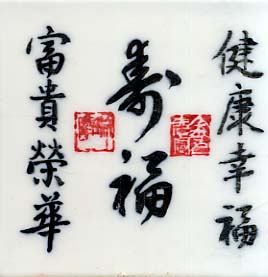 健康幸福
寿福
富貴榮華